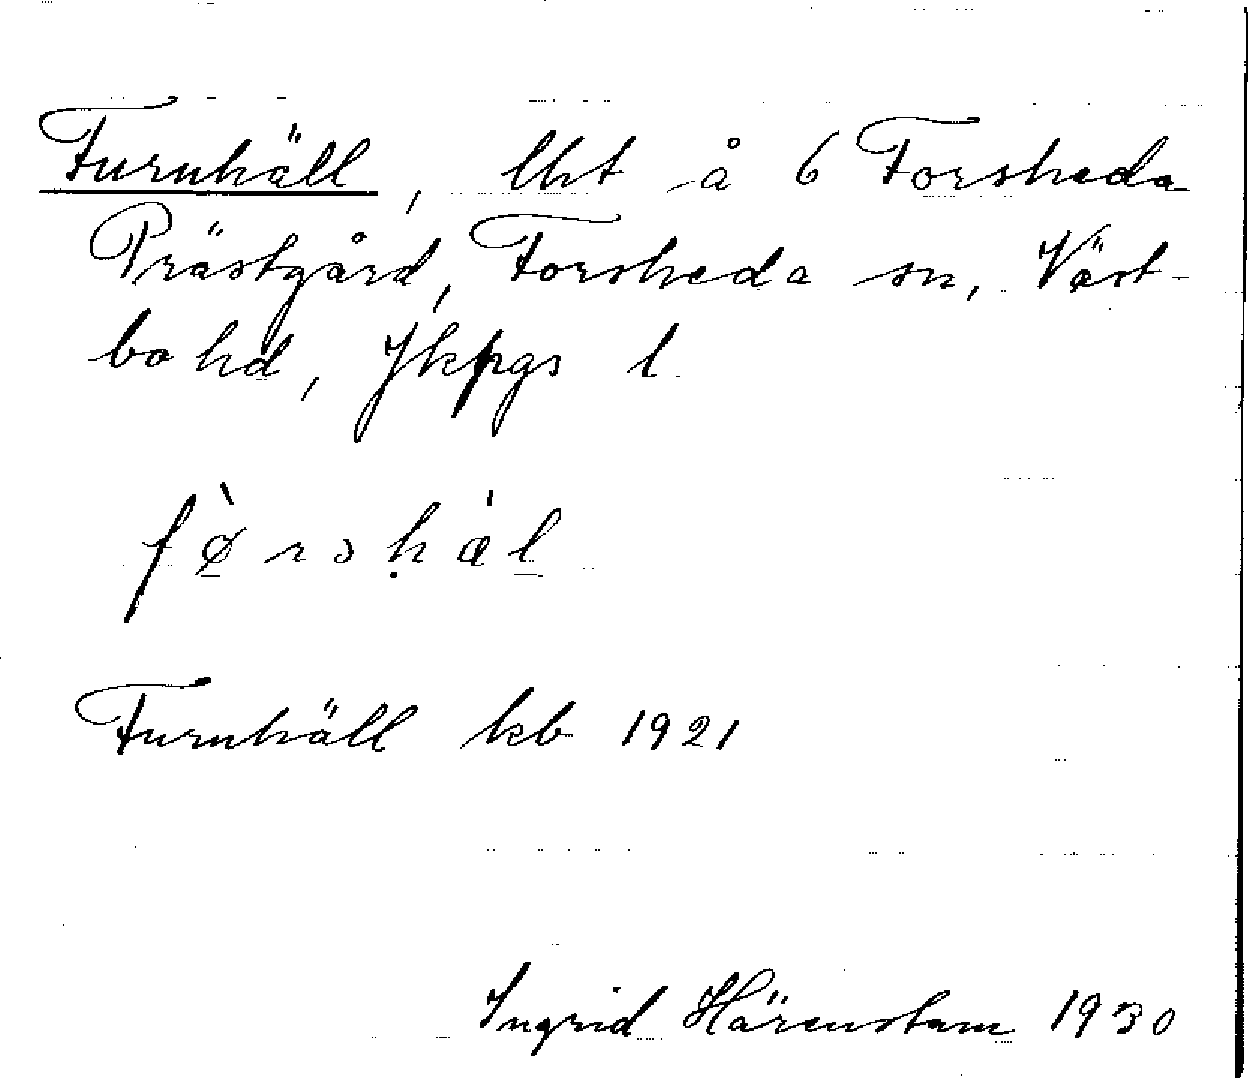 Furuhäll, lht å 6 Forsheda
Prästgård, Forsheda sn, Väst-
bo hd, Jkpgs l.
Furuhäll kb 1921
Ingrid Härenstam 1930